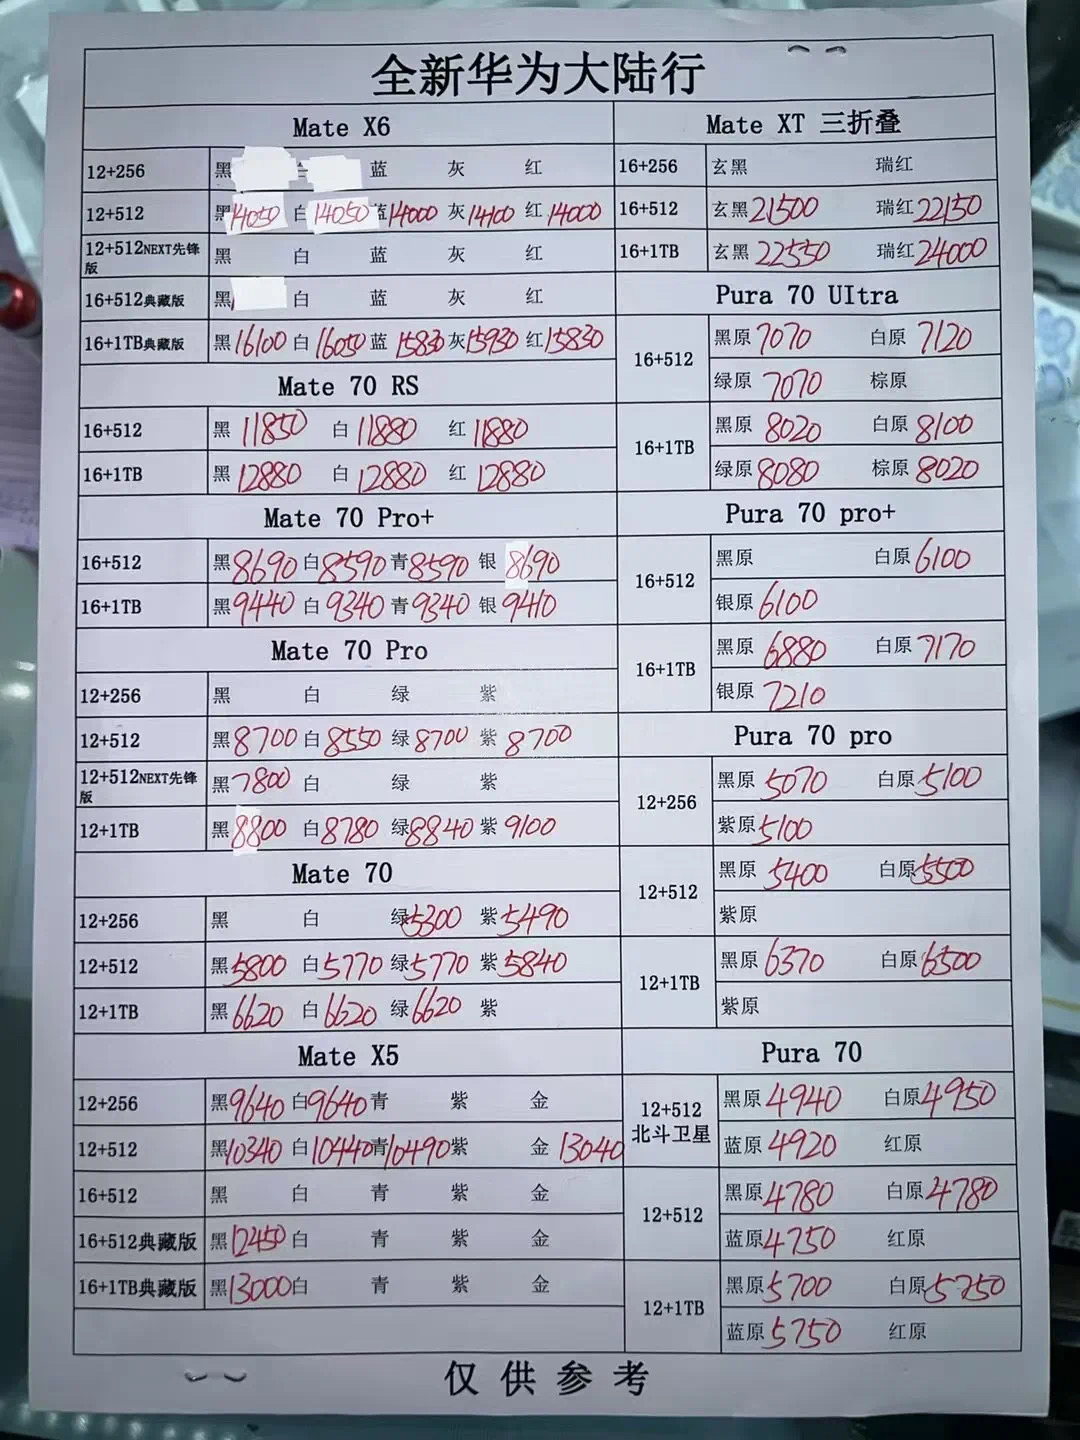 全新华为大陆行
Mate X6
12+256 黑 白 蓝 灰 红
12+512 黑14050 白14050 蓝14000 灰14100 红14000
12+512NEXT先锋版 黑 白 蓝 灰 红
16+512典藏版 黑 白 蓝 灰 红
16+1TB典藏版 黑16100 白16050 蓝15830 灰15930 红15830
Mate 70 RS
16+512 黑11850 白11880 红11880
16+1TB 黑12880 白12880 红12880
Mate 70 Pro+
16+512 黑8690 白8590 青8590 银8690
16+1TB 黑9440 白9340 青9340 银9410
Mate 70 Pro
12+256 黑 白 绿 紫
12+512 黑8700 白8550 绿8700 紫8700
12+512NEXT先锋版 黑7800 白 绿 紫
12+1TB 黑8800 白8780 绿8840 紫9100
Mate 70
12+256 黑 白 绿5300 紫5490
12+512 黑5800 白5770 绿5770 紫5840
12+1TB 黑6620 白6620 绿6620 紫
Mate X5
12+256 黑9640 白9640 青 紫 金
12+512 黑10340 白10440 青10490 紫 金13040
16+512 黑 白 青 紫 金
16+512典藏版 黑12450 白 青 紫 金
16+1TB典藏版 黑13000 白 青 紫 金
Mate XT 三折叠
16+256 玄黑 瑞红
16+512 玄黑21500 瑞红22150
16+1TB 玄黑22550 瑞红24000
Pura 70 UItra
16+512 黑原7070 白原7120
绿原7070 棕原
16+1TB 黑原8020 白原8100
绿原8080 棕原8020
Pura 70 pro+
16+512 黑原 白原6100
银原6100
16+1TB 黑原6880 白原7170
银原7210
Pura 70 pro
12+256 黑原5070 白原5100
紫原5100
12+512 黑原5400 白原5500
紫原
12+1TB 黑原6370 白原6500
紫原
Pura 70
12+512北斗卫星 黑原4940 白原4950
蓝原4920 红原
12+512 黑原4780 白原4780
蓝原4750 红原
12+1TB 黑原5700 白原5750
蓝原5750 红原
仅供参考